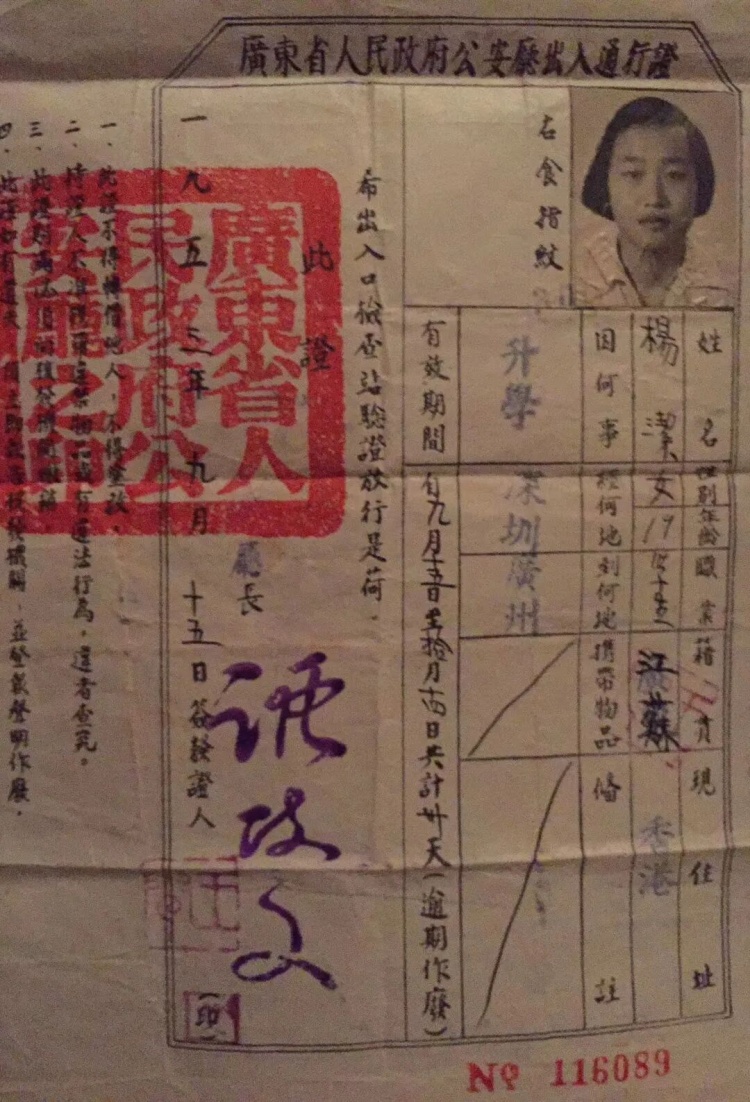 廣東省人民政府公安廳出入通行證
右食指紋
姓名
楊潔
性別
女
年齡
19
職業
籍貫
江蘇
現住址
香港
因何事
升學
經何地
深圳
到何地
廣州
攜帶物品
備註
有效期間
自九月十五日至拾月十四日共計卅天(逾期作廢)
希出入口檢查站驗證放行是荷.
此證
廳長
譚政文
一九五三年九月十五日簽發證人
(印)
廣東省人民政府公安廳之印
一、此證不得轉借他人,不得塗改.
二、持證人不准攜帶違禁物品或有違法行為,違者查究。
三、此證期滿
四、此證如有遺失 機關,並登報聲明作廢.
No 116089